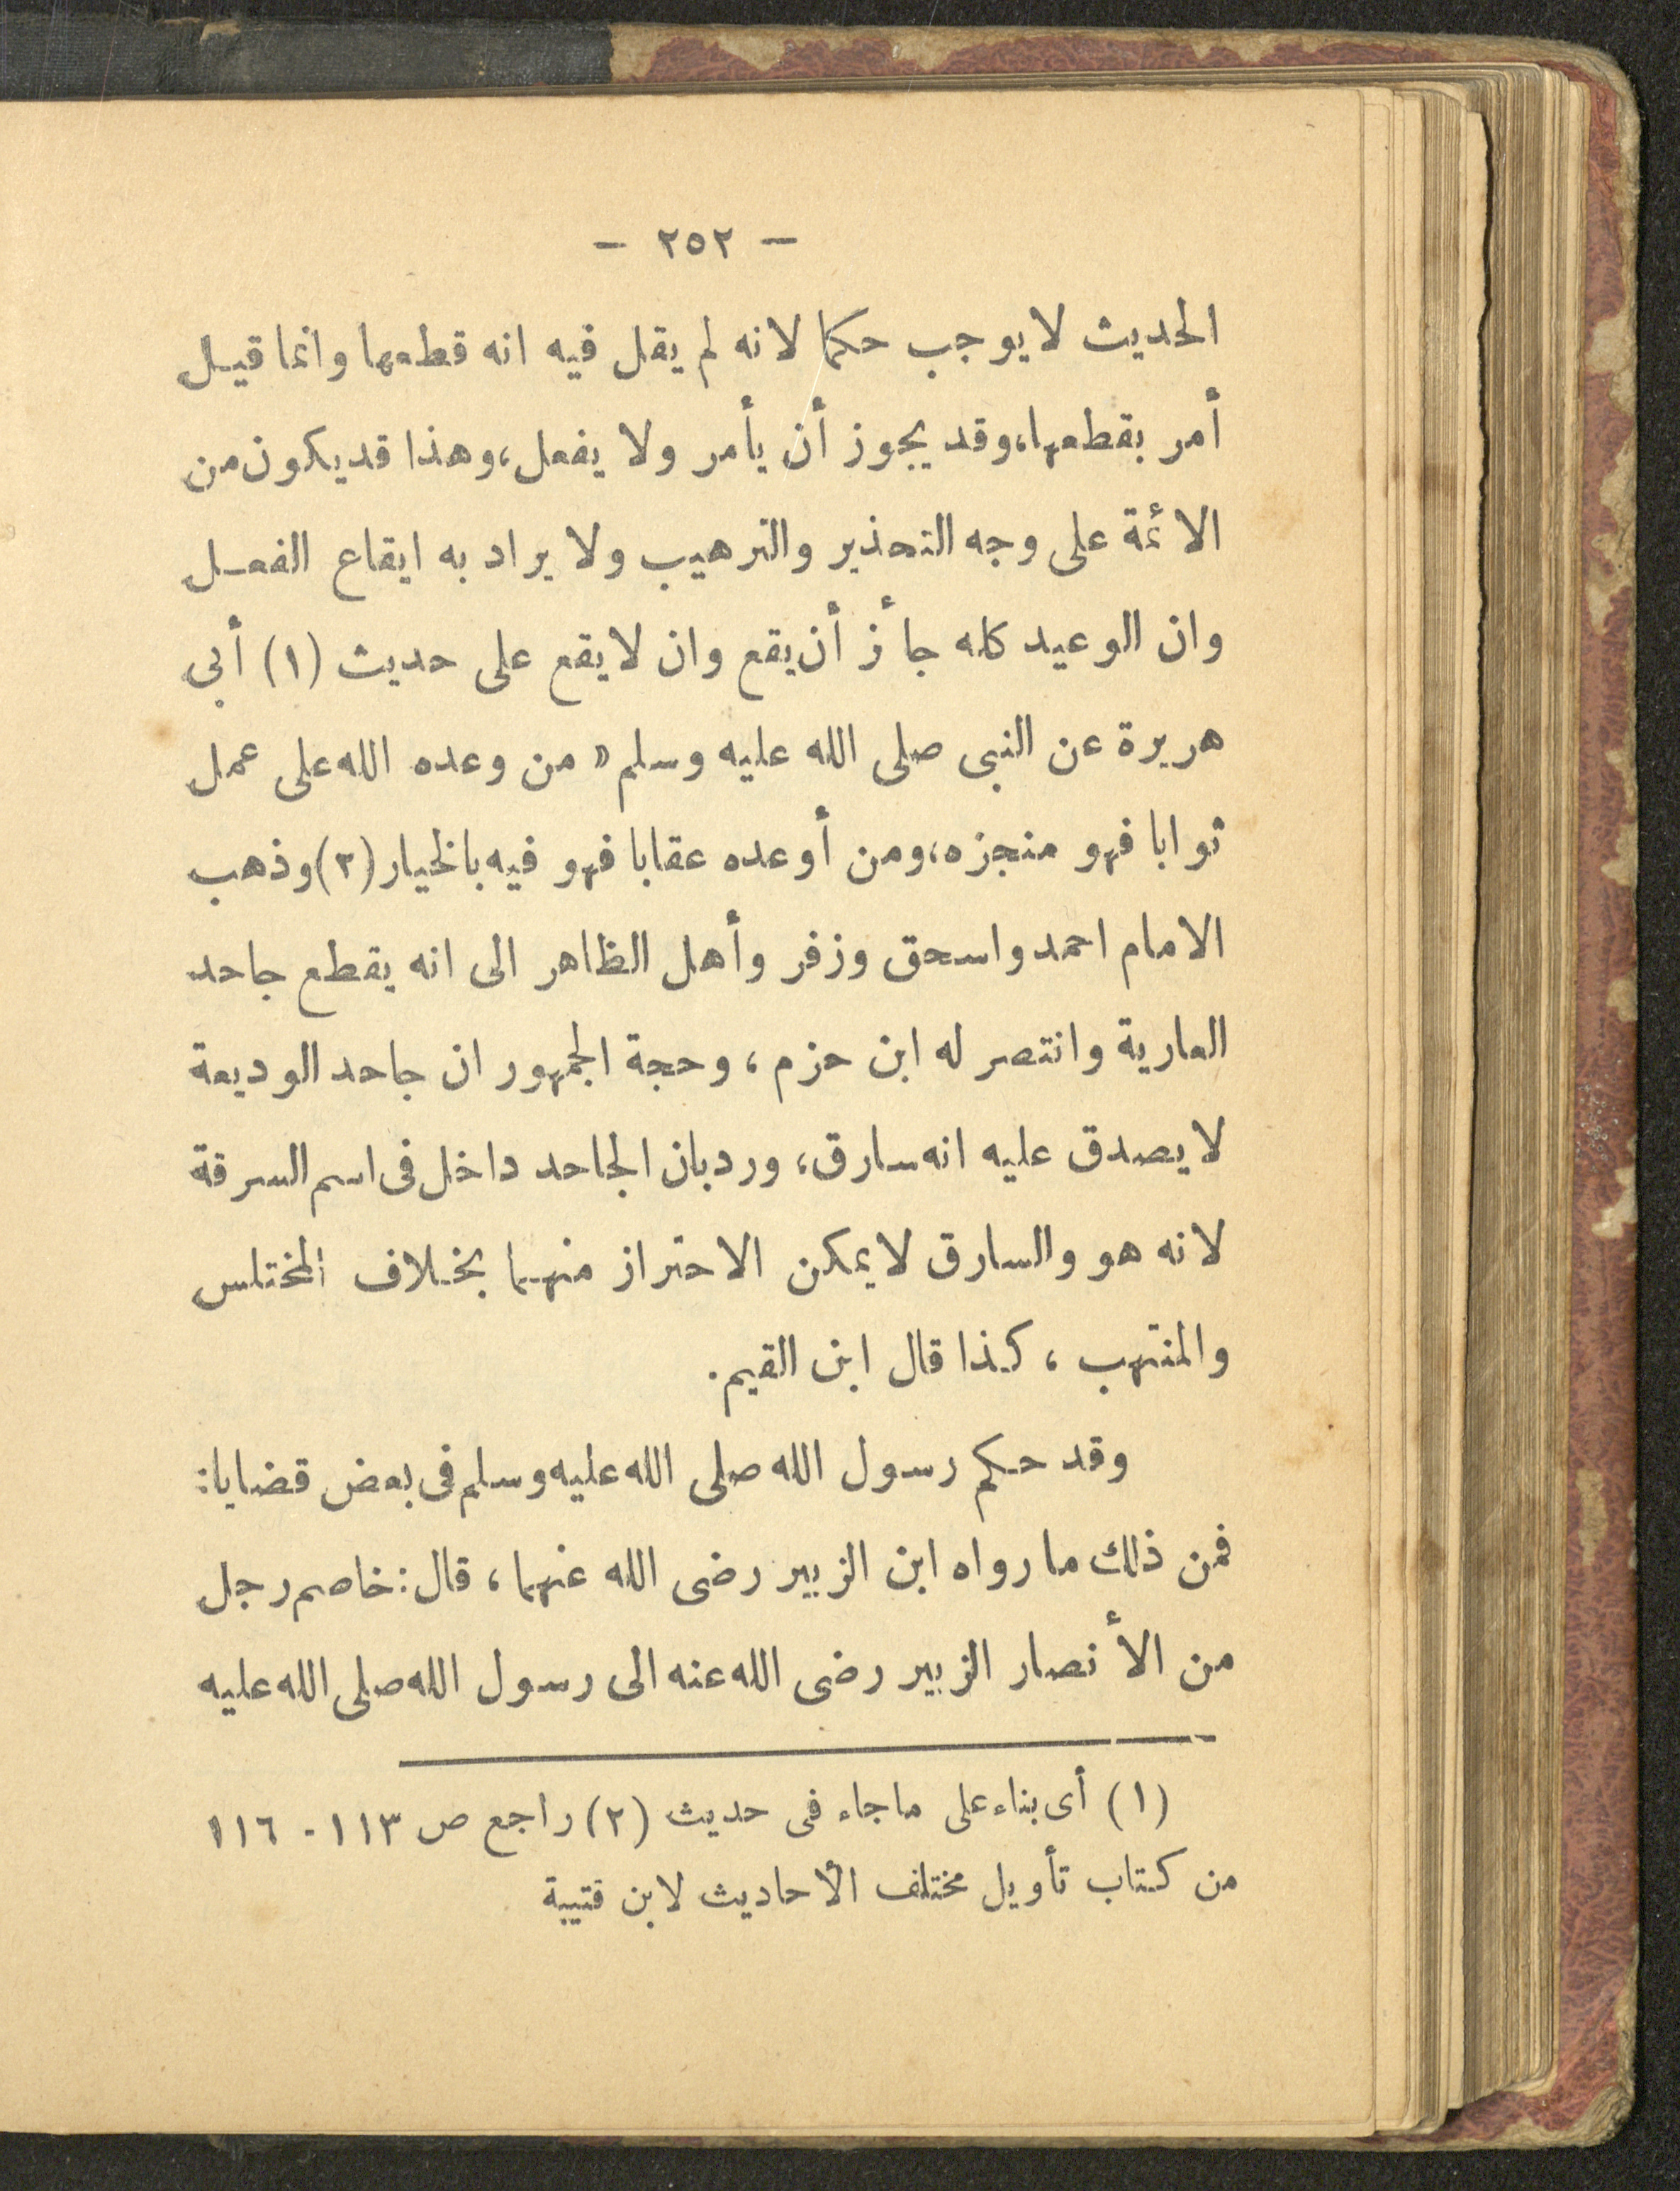 — ٢٥٢ —
الحديث لا يوجب حكما لانه لم يقل فيه انه قطعها وانما قيل
أمر بقطعها، وقد يجوز أن يأمر ولا يفعل، وهذا قد يكون من
الائمة على وجه التحذير والترهيب ولا يراد به ايقاع الفعل
وان الوعيد كله جائز أن يقع وان لا يقع على حديث (١) أبي
هريرة عن النبى صلى الله عليه وسلم «من وعده الله على عمل
ثوابا فهو منجزه، ومن أوعده عقابا فهو فيه بالخيار (٢) وذهب
الامام احمد واسحق وزفر وأهل الظاهر الى انه يقطع جاحد
العارية وانتصر له ابن حزم، وحجة الجمهور ان جاحد الوديعة
لا يصدق عليه انه سارق، ورد بان الجاحد داخل فى اسم السرقة
لانه هو والسارق لا يمكن الاحتراز منهما بخلاف المختلس
والمنتهب، كذا قال ابن القيم.
وقد حكم رسول الله صلى الله عليه وسلم فى بعض قضايا:
فمن ذلك ما رواه ابن الزبير رضى الله عنهما، قال: خاصم رجل
من الأنصار الزبير رضى الله عنه الى رسول الله صلى الله عليه
(١) أى بناء على ما جاء فى حديث (٢) راجع ص ١١٣ - ١١٦
من كتاب تأويل مختلف الأحاديث لابن قتيبة